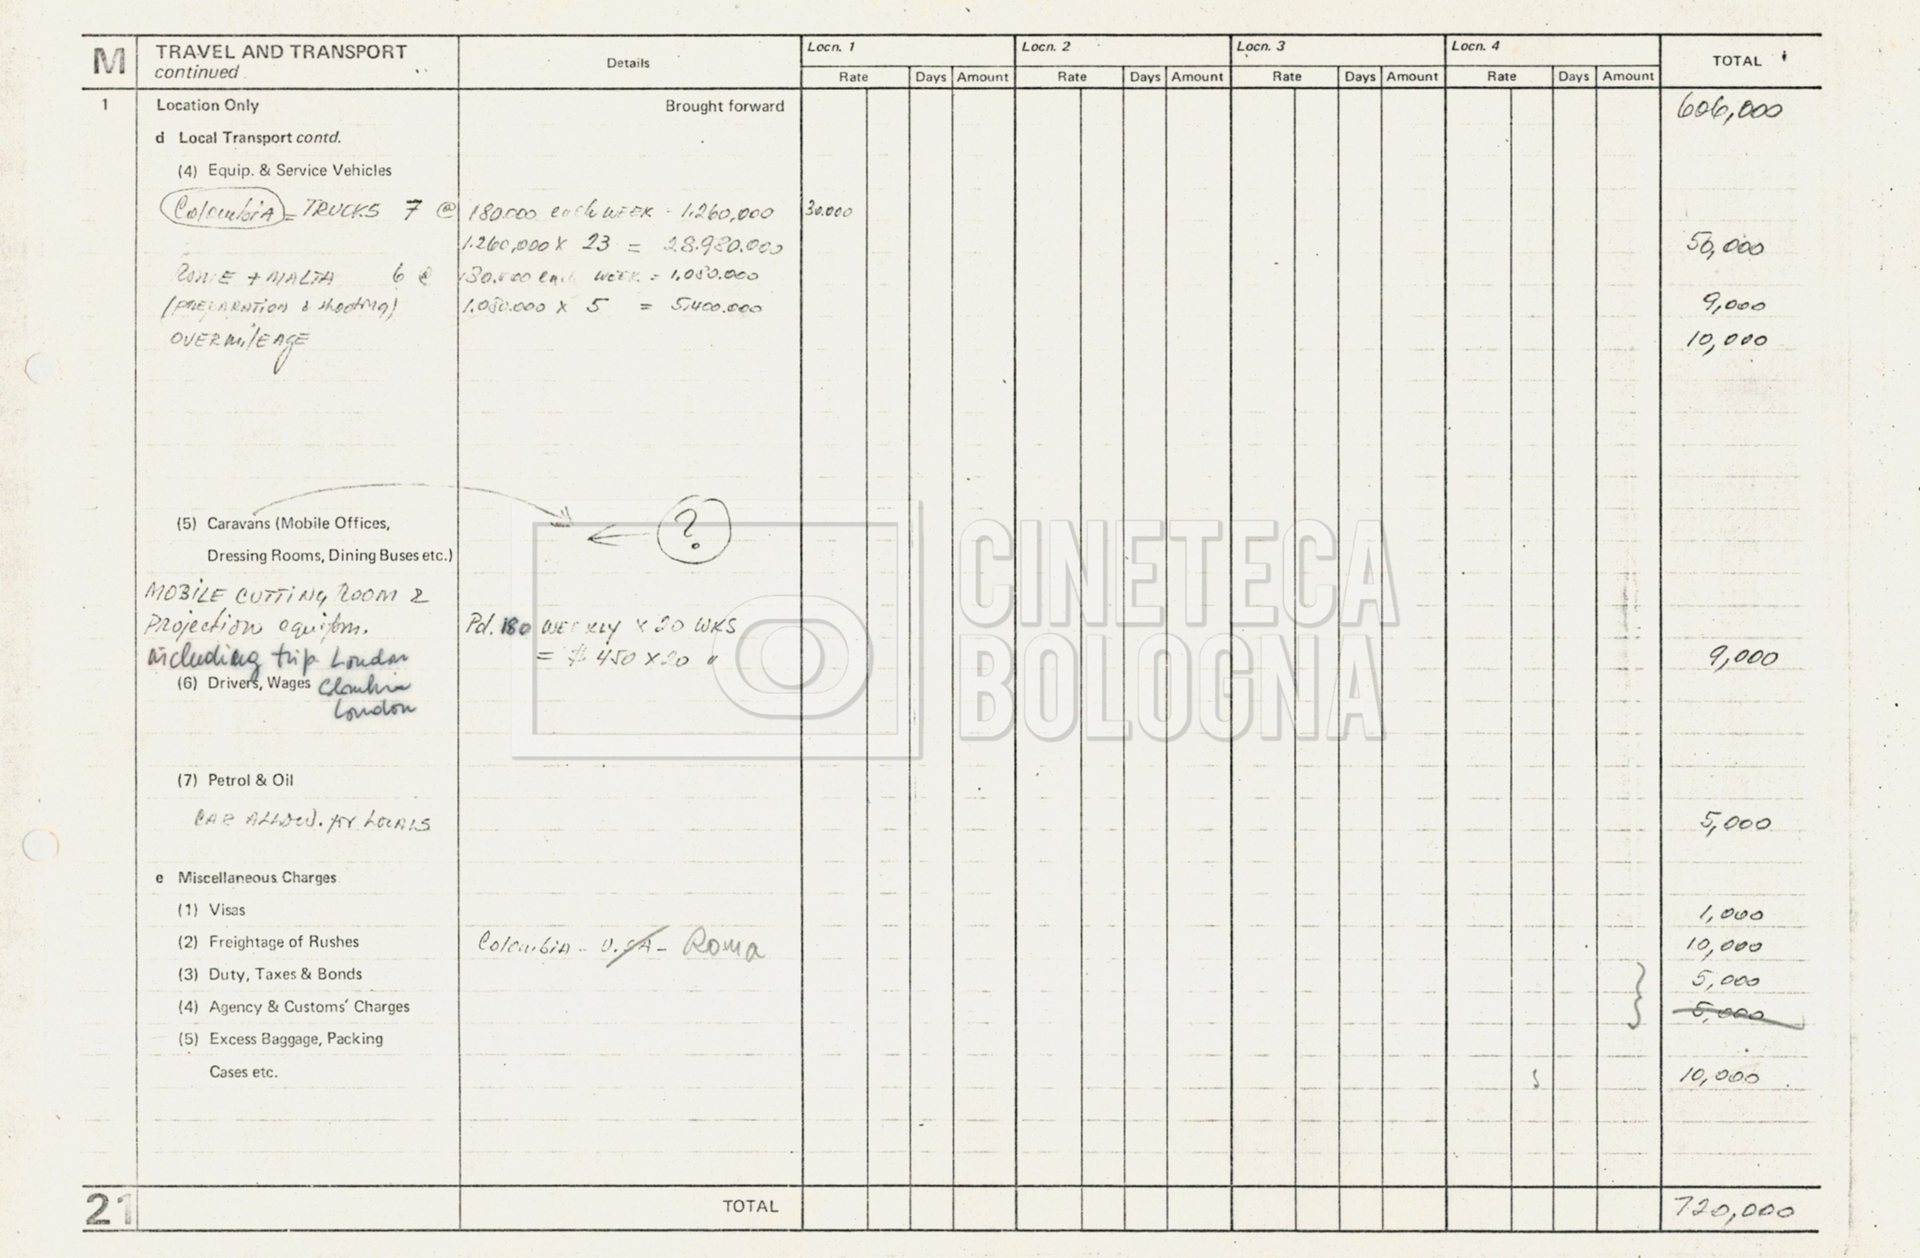 M TRAVEL AND TRANSPORT continued Details Locn. 1 Locn. 2 Locn. 3 Locn. 4 TOTAL
Rate Days Amount Rate Days Amount Rate Days Amount Rate Days Amount
1 Location Only Brought forward 606,000
d Local Transport contd.
(4) Equip. & Service Vehicles
Colombia = TRUCKS 7 @ 180.000 each WEEK - 1.260,000 30.000
1.260,000 x 23 = 28.980.000 50,000
ROME + MALTA 6 @ 180.000 each WEEK = 1,080.000
(PREPARATION & shooting) 1.080.000 x 5 = 5.400.000 9,000
OVERMILEAGE 10,000
(5) Caravans (Mobile Offices, ?
Dressing Rooms, Dining Buses etc.)
MOBILE CUTTING ROOM &
Projection equipm. Pd. 180 WEEKLY x 20 WKS
including trip London = $ 450 x 20 " 9,000
(6) Drivers, Wages Colombia
London
(7) Petrol & Oil
CAR ALLOW. for LOCALS 5,000
e Miscellaneous Charges
(1) Visas 1,000
(2) Freightage of Rushes Colombia - U.SA - Roma 10,000
(3) Duty, Taxes & Bonds 5,000
(4) Agency & Customs' Charges 5,000
(5) Excess Baggage, Packing
Cases etc. 10,000
21 TOTAL 720,000
CINETECA
BOLOGNA